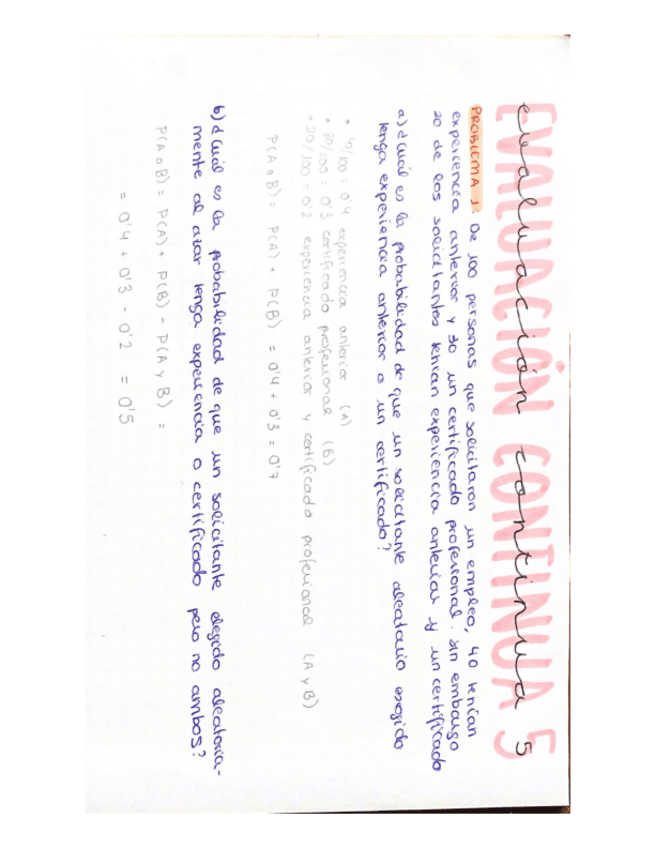 EVALUACIÓN CONTINUA 5
evaluación continua 5
PROBLEMA 1: De 100 personas que solicitaron un empleo, 40 tenían
experiencia anterior y 30 un certificado profesional. Sin embargo
20 de los solicitantes tenían experiencia anterior y un certificado
a) ¿Cuál es la probabilidad de que un solicitante aleatorio escogido
tenga experiencia anterior o un certificado?
• 40/100 = 0'4 experiencia anterior (A)
• 30/100 = 0'3 certificado profesional (B)
• 20/100 = 0'2 experiencia anterior y certificado profesional (A y B)
P(A o B) = P(A) + P(B) = 0'4 + 0'3 = 0'7
b) ¿Cuál es la probabilidad de que un solicitante elegido aleatoria-
mente al azar tenga experiencia o certificado pero no ambos?
P(A o B) = P(A) + P(B) - P(A y B) =
= 0'4 + 0'3 - 0'2 = 0'5